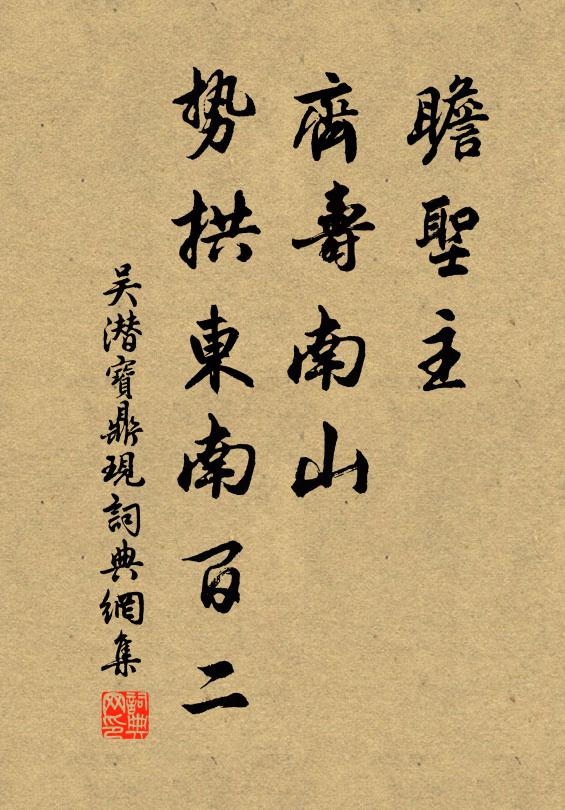 瞻聖主
齊壽南山
势拱東南百二
吴潜寶鼎現詞典網集
詞典网印